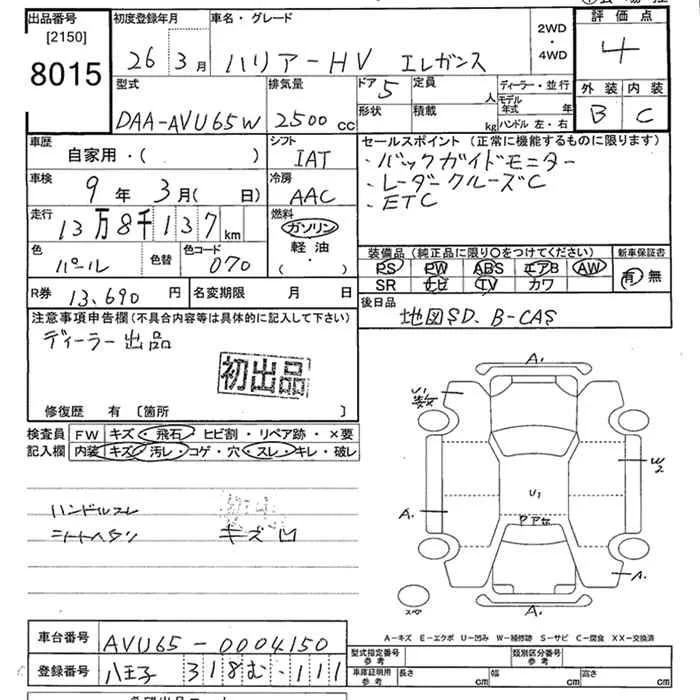 出品番号 初度登録年月 車名・グレード 2WD・4WD 評価点
[2150]
8015
26年 3月 ハリアーHV エレガンス 4
型式 排気量 ドア 5 定員 人 ディーラー・並行 外装 内装
DAA-AVU65W 2500cc 形状 積載 kg モデル年式 年 ハンドル 左・右 B C
車歴 自家用・( ) シフト IAT セールスポイント(正常に機能するものに限ります)
・バックガイドモニター
・レーダークルーズC
・ETC
車検 9年 3月( 日) 冷房 AAC
走行 13万8千137km 燃料 ガソリン 軽油 ( ・ )
色 パール 色替 色コード 070
装備品(純正品に限り○をつけてください) 新車保証書
PS PW ABS エアB AW 有・無
SR ナビ TV カワ
R券 13,690円 名変期限 月 日 後日品
地図SD、B-CAS
注意事項申告欄(不具合内容等は具体的に記入して下さい)
ディーラー出品
初出品
修復歴 有 [箇所 ]
検査員 FW キズ・飛石・ヒビ割・リペア跡・×要
記入欄 内装 キズ・汚レ・コゲ・穴・スレ・キレ・破レ
ハンドルスレ
シートヘタリ キズ凹
A.
U1
W2
U1
A.
A.
A.
スペア
A-キズ E-エクボ U-凹み W-補修跡 S-サビ C-腐食 XX-交換済
車台番号 AVU65-0004150 型式指定番号 参考 類別区分番号 参考
登録番号 八王子 318む・111 車庫証明用 参考 長さ cm 幅 cm 高さ cm